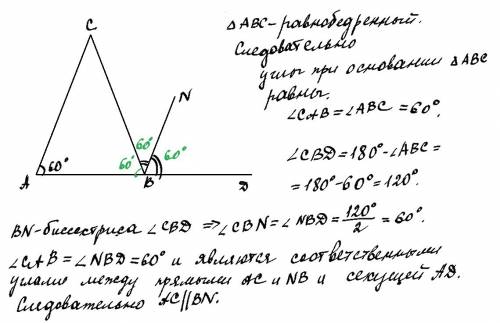 C
△ABC-равнобедренный.
Следовательно
углы при основании △ABC
равны.
∠CAB=∠ABC=60°.
N
60°
A 60° 60° B 60° D
∠CBD=180°-∠ABC=
=180°-60°=120°.
BN-биссектриса ∠CBD ⇒ ∠CBN=∠NBD=120°/2=60°.
∠CAB=∠NBD=60° и являются соответственными
углами между прямыми AC и NB и секущей AD.
Следовательно AC||BN.